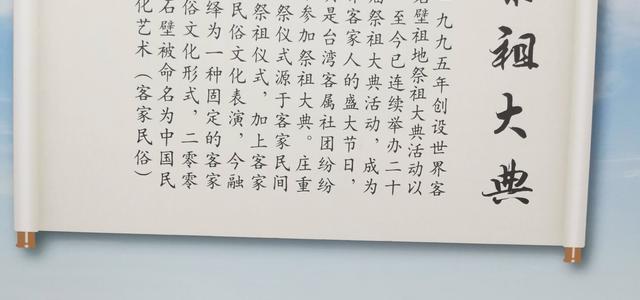 祖大典
九九五年创设世界客
壁祖地祭祖大典活动以
至今已连续举办二十
祭祖大典活动，成为
客家人的盛大节日，
是台湾客属社团纷纷
参加祭祖大典。庄重
祭仪式源于客家民间
祭祖仪式，加上客家
民俗文化表演，今融
绎为一种固定的客家
俗文化形式，二零零
石壁被命名为中国民
化艺术（客家民俗）